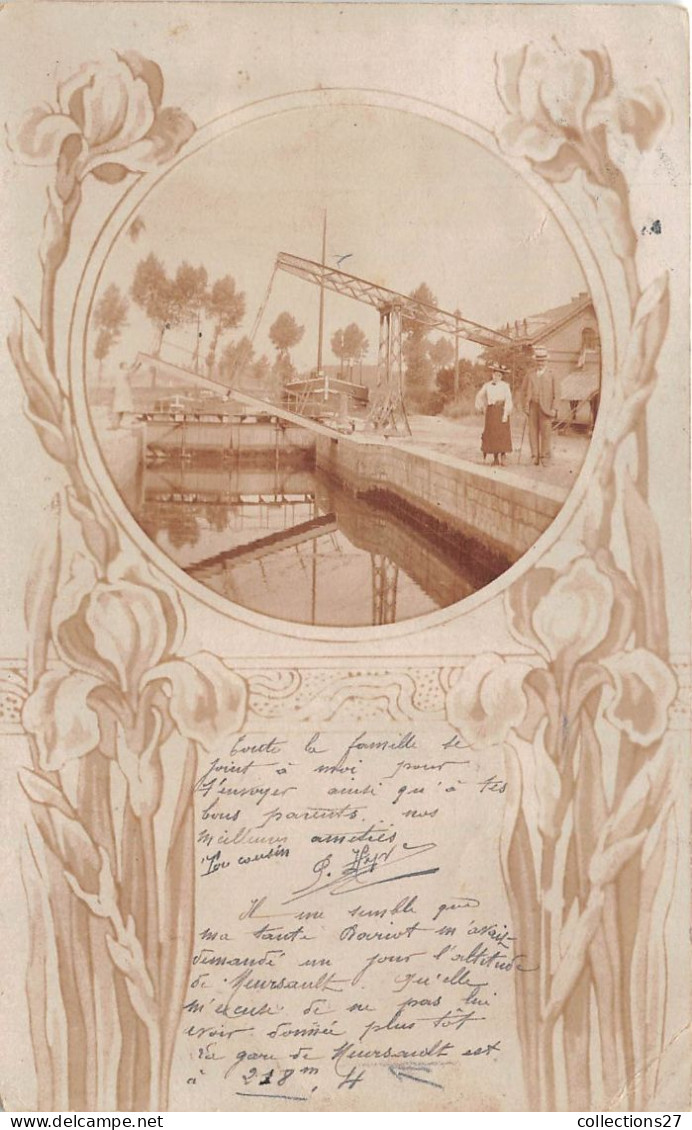 Toute la famille se
joint à moi pour
t'envoyer ainsi qu'à tes
bons parents.. nos
meilleures amitiés
Ton cousin
Il me semble que
ma tante Bariot m'avait
demandé un jour l'altitude
de Meursault. Qu'elle
m'excuse de ne pas lui
avoir donnée plus tôt
La gare de Meursault est
à 218m, 4
collections27